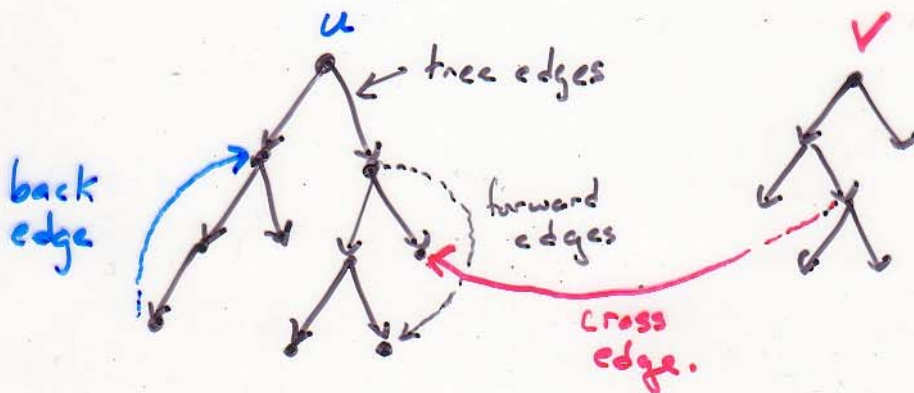 u
v
tree edges
back
edge
forward
edges
cross
edge.